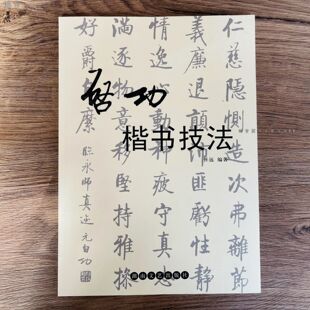 仁慈隱惻造次弗離節
義廉退顛沛匪虧性静
情逸心動神疲守真志
滿逐物意移堅持雅操
好爵自縻
臨永師真迹 元白功
启功
楷书技法
编著
湖南文艺出版社